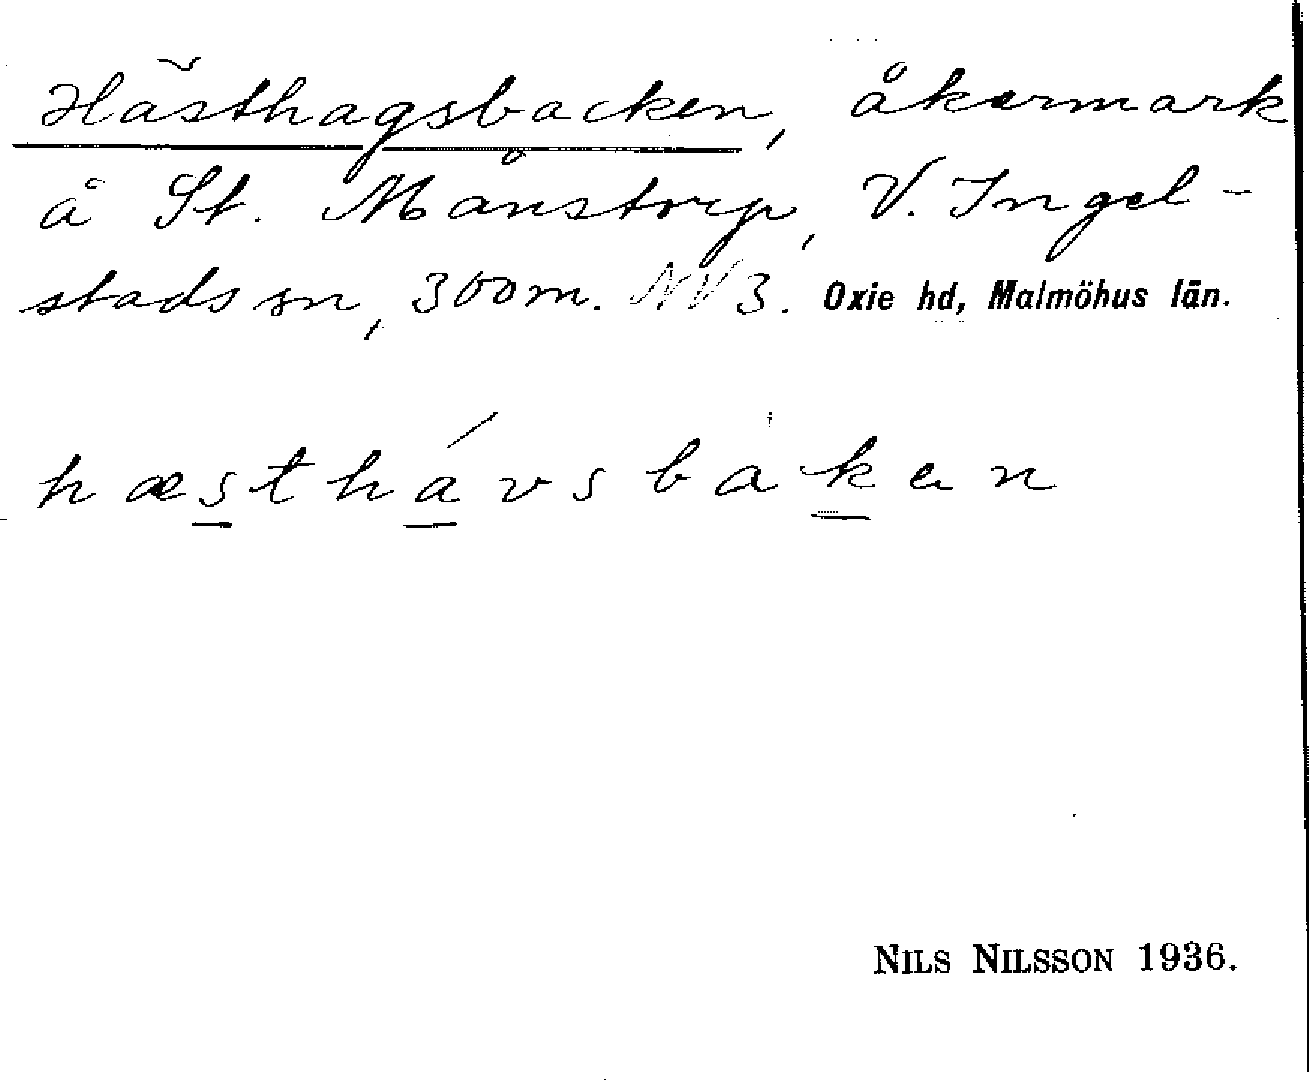 Hästhagsbacken, åkermark
å St. Månstrup, V. Ingel-
stads sn, 300 m. NV 3. Oxie hd, Malmöhus län.
hæsthávsbakan
NILS NILSSON 1936.